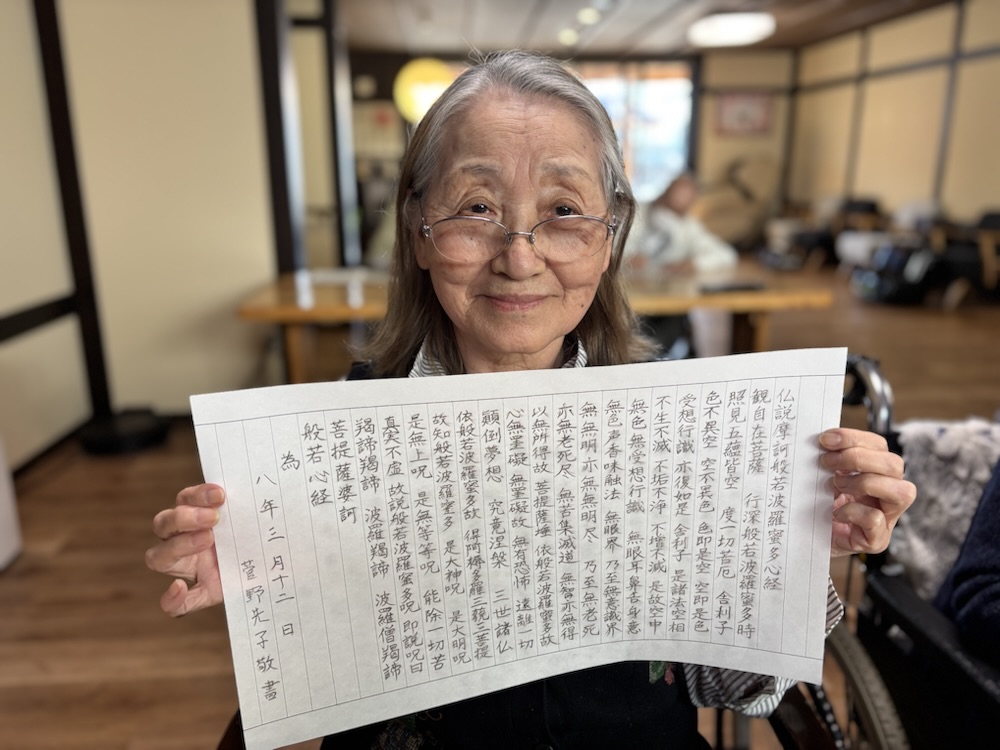 仏説摩訶般若波羅蜜多心経
観自在菩薩 行深般若波羅蜜多時
照見五蘊皆空 度一切苦厄 舎利子
色不異空 空不異色 色即是空 空即是色
受想行識 亦復如是 舎利子 是諸法空相
不生不滅 不垢不浄 不増不減 是故空中
無色 無受想行識 無眼耳鼻舌身意
無色声香味触法 無眼界 乃至無意識界
無無明 亦無無明尽 乃至無老死
亦無老死尽 無苦集滅道 無智亦無得
以無所得故 菩提薩埵 依般若波羅蜜多故
心無罣礙 無罣礙故 無有恐怖 遠離一切
顛倒夢想 究竟涅槃 三世諸仏
依般若波羅蜜多故 得阿耨多羅三藐三菩提
故知般若波羅蜜多 是大神呪 是大明呪
是無上呪 是無等等呪 能除一切苦
真実不虚 故説般若波羅蜜多呪 即説呪曰
羯諦羯諦 波羅羯諦 波羅僧羯諦
菩提薩婆訶
般若心経
為
八年三月十二日
菅野先子敬書